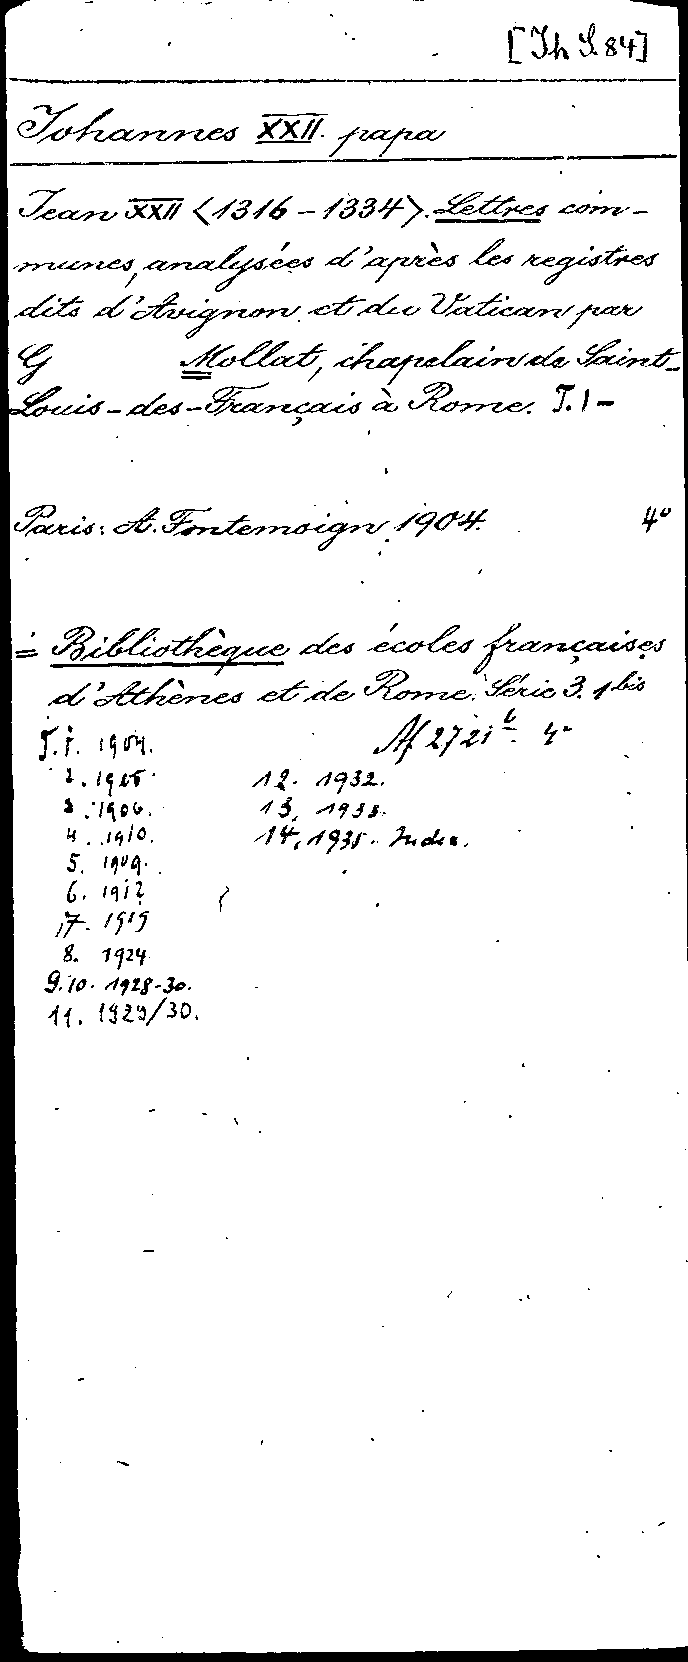 [Th S. 84]
Johannes XXII. papa
Jean XXII <1316-1334>. Lettres com-
munes, analysées d'après les registres
dits d'Avignon et du Vatican par
G Mollat, chapelain de Saint-
Louis-des-Français à Rome. T. 1-
Paris: A. Fontemoign 1904. 4°
= Bibliothèque des écoles françaises
d'Athènes et de Rome. Série 3. 1 bis
T. 1. 1904. Af 2721 b. 4°
2. 1905. 12. 1932.
3. 1906. 13. 1933.
4. 1910. 14. 1935. Index.
5. 1909.
6. 1912
7. 1919
8. 1924
9.10. 1928-30.
11. 1929/30.